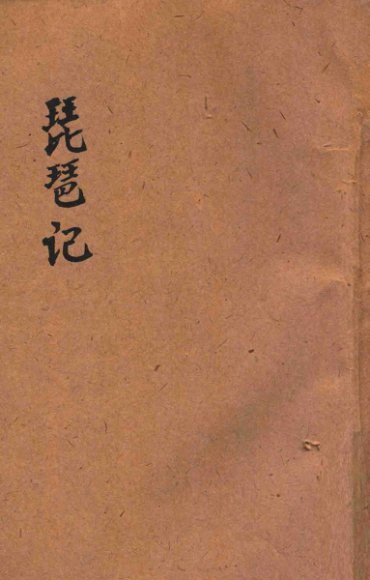 琵琶记